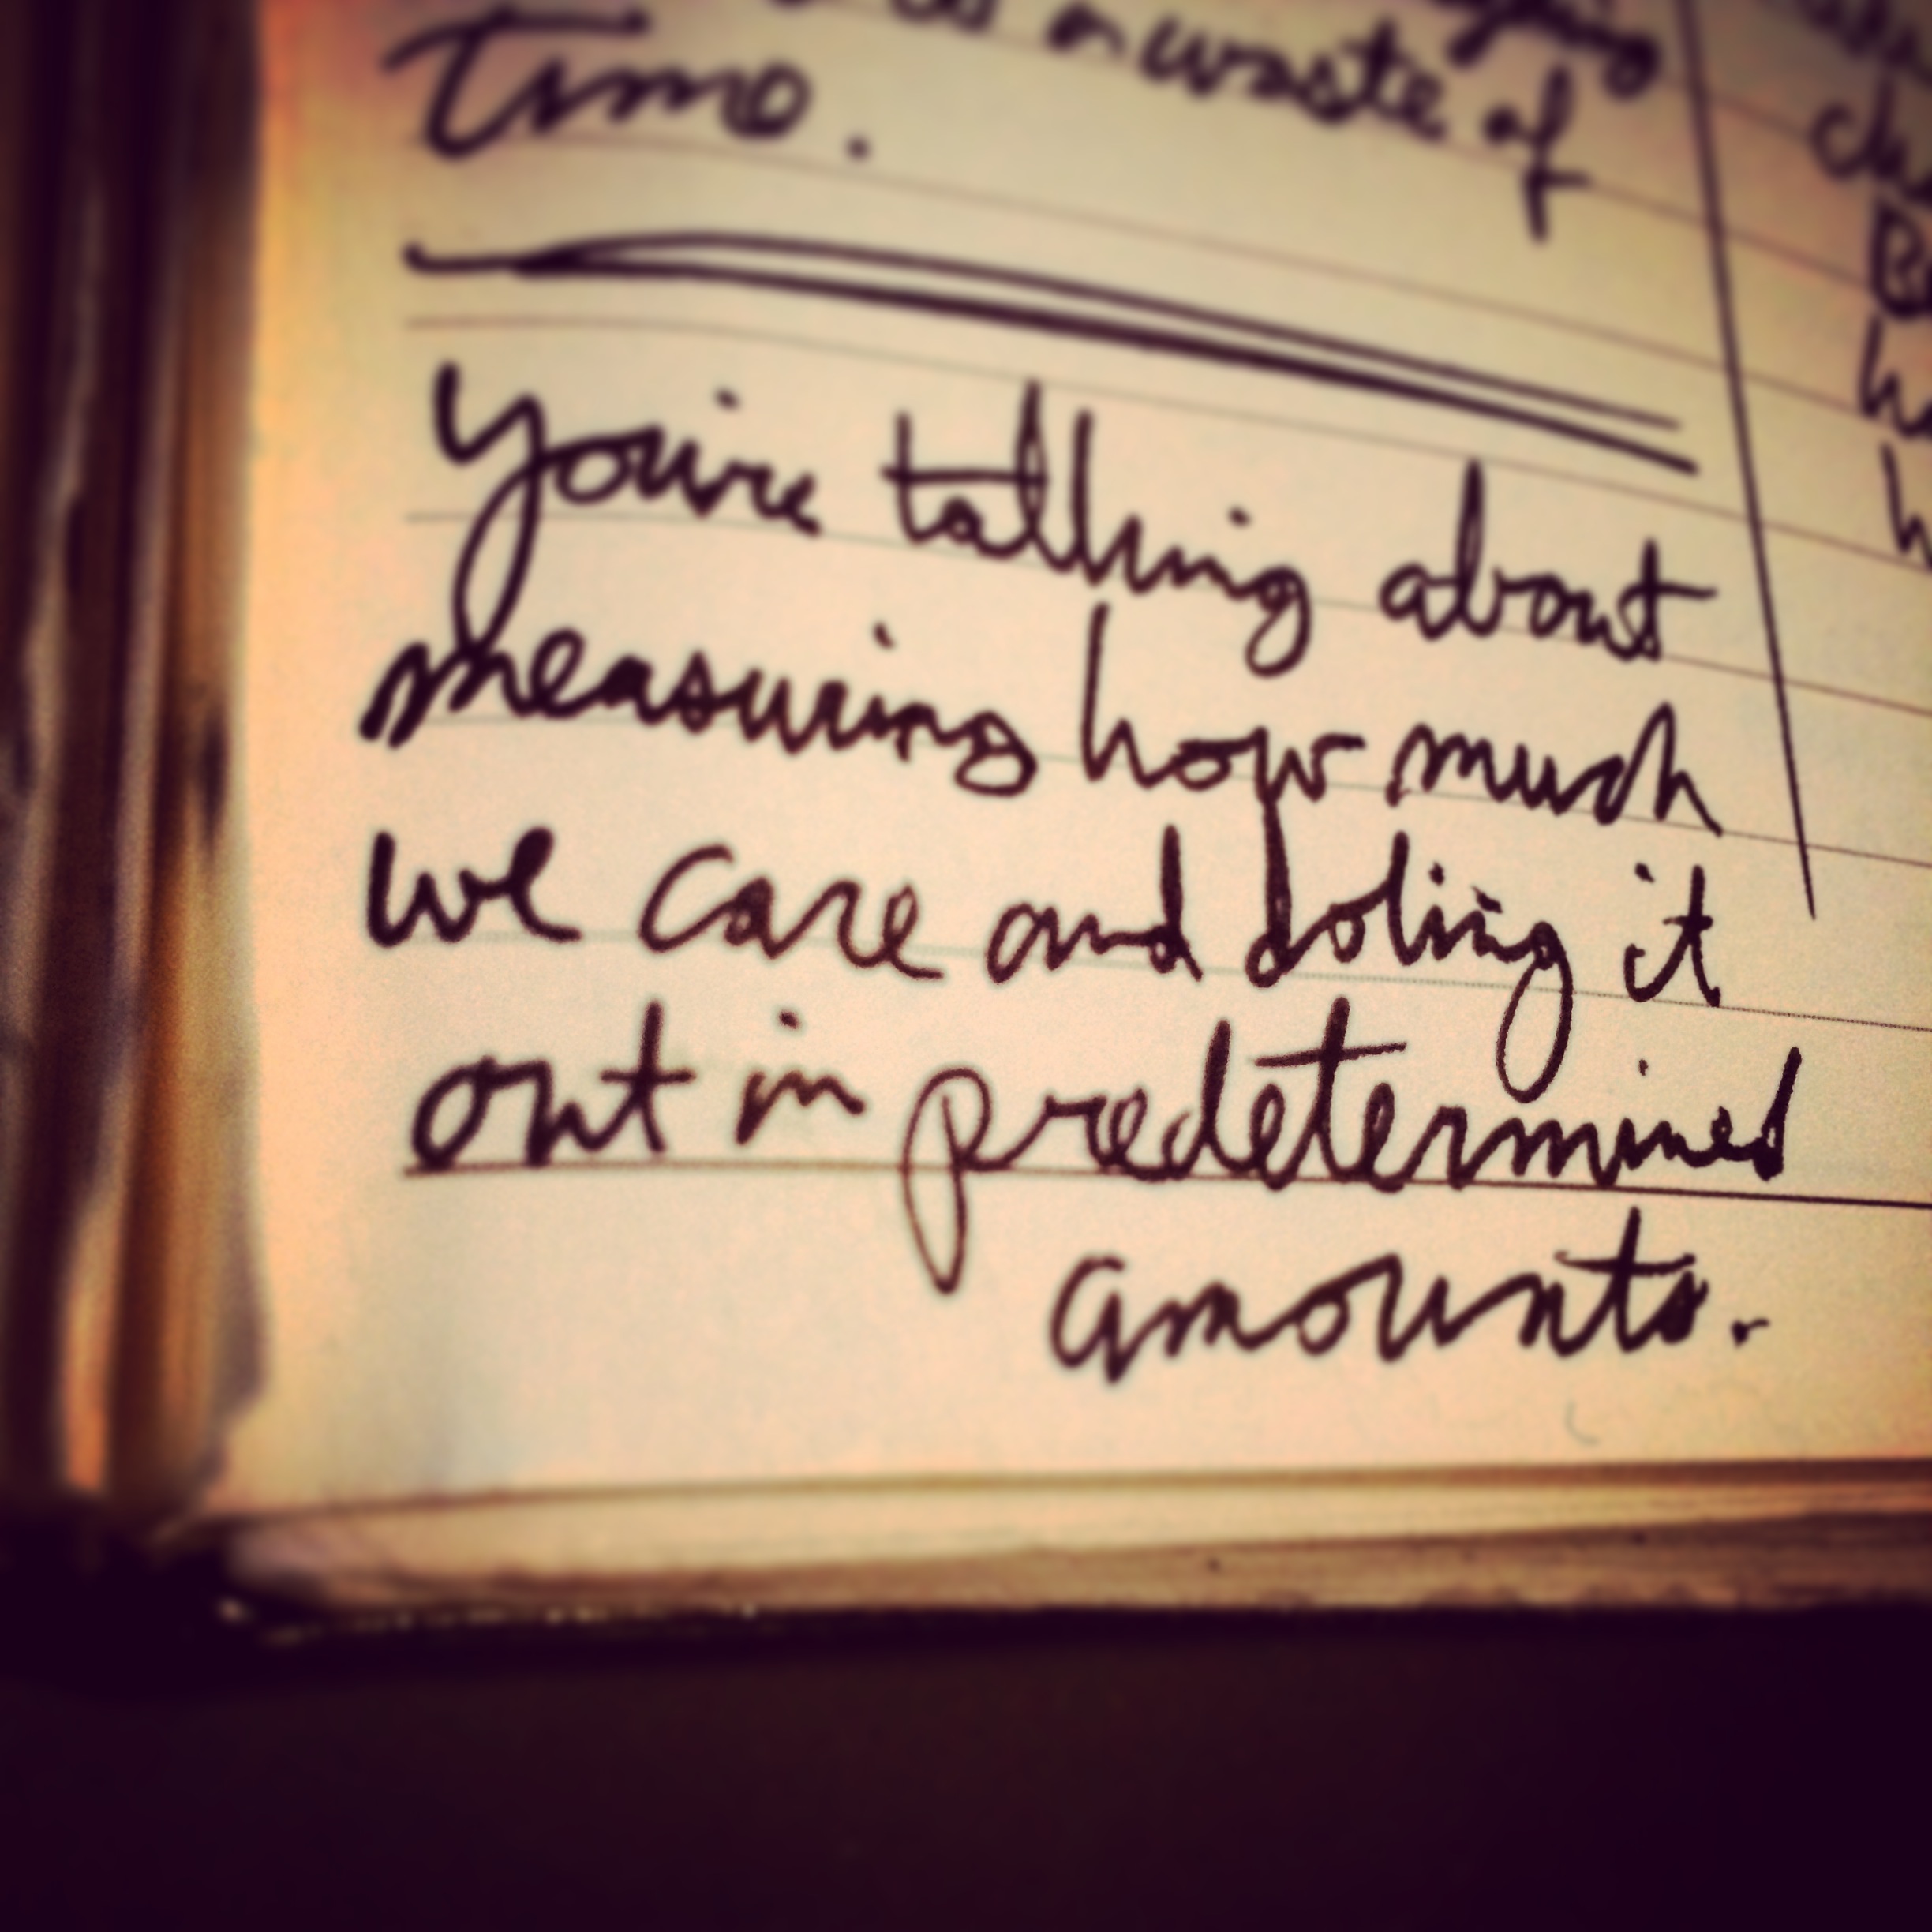 a waste of
time.
you're talking about
measuring how much
we care and doling it
out in predetermined
amounts.